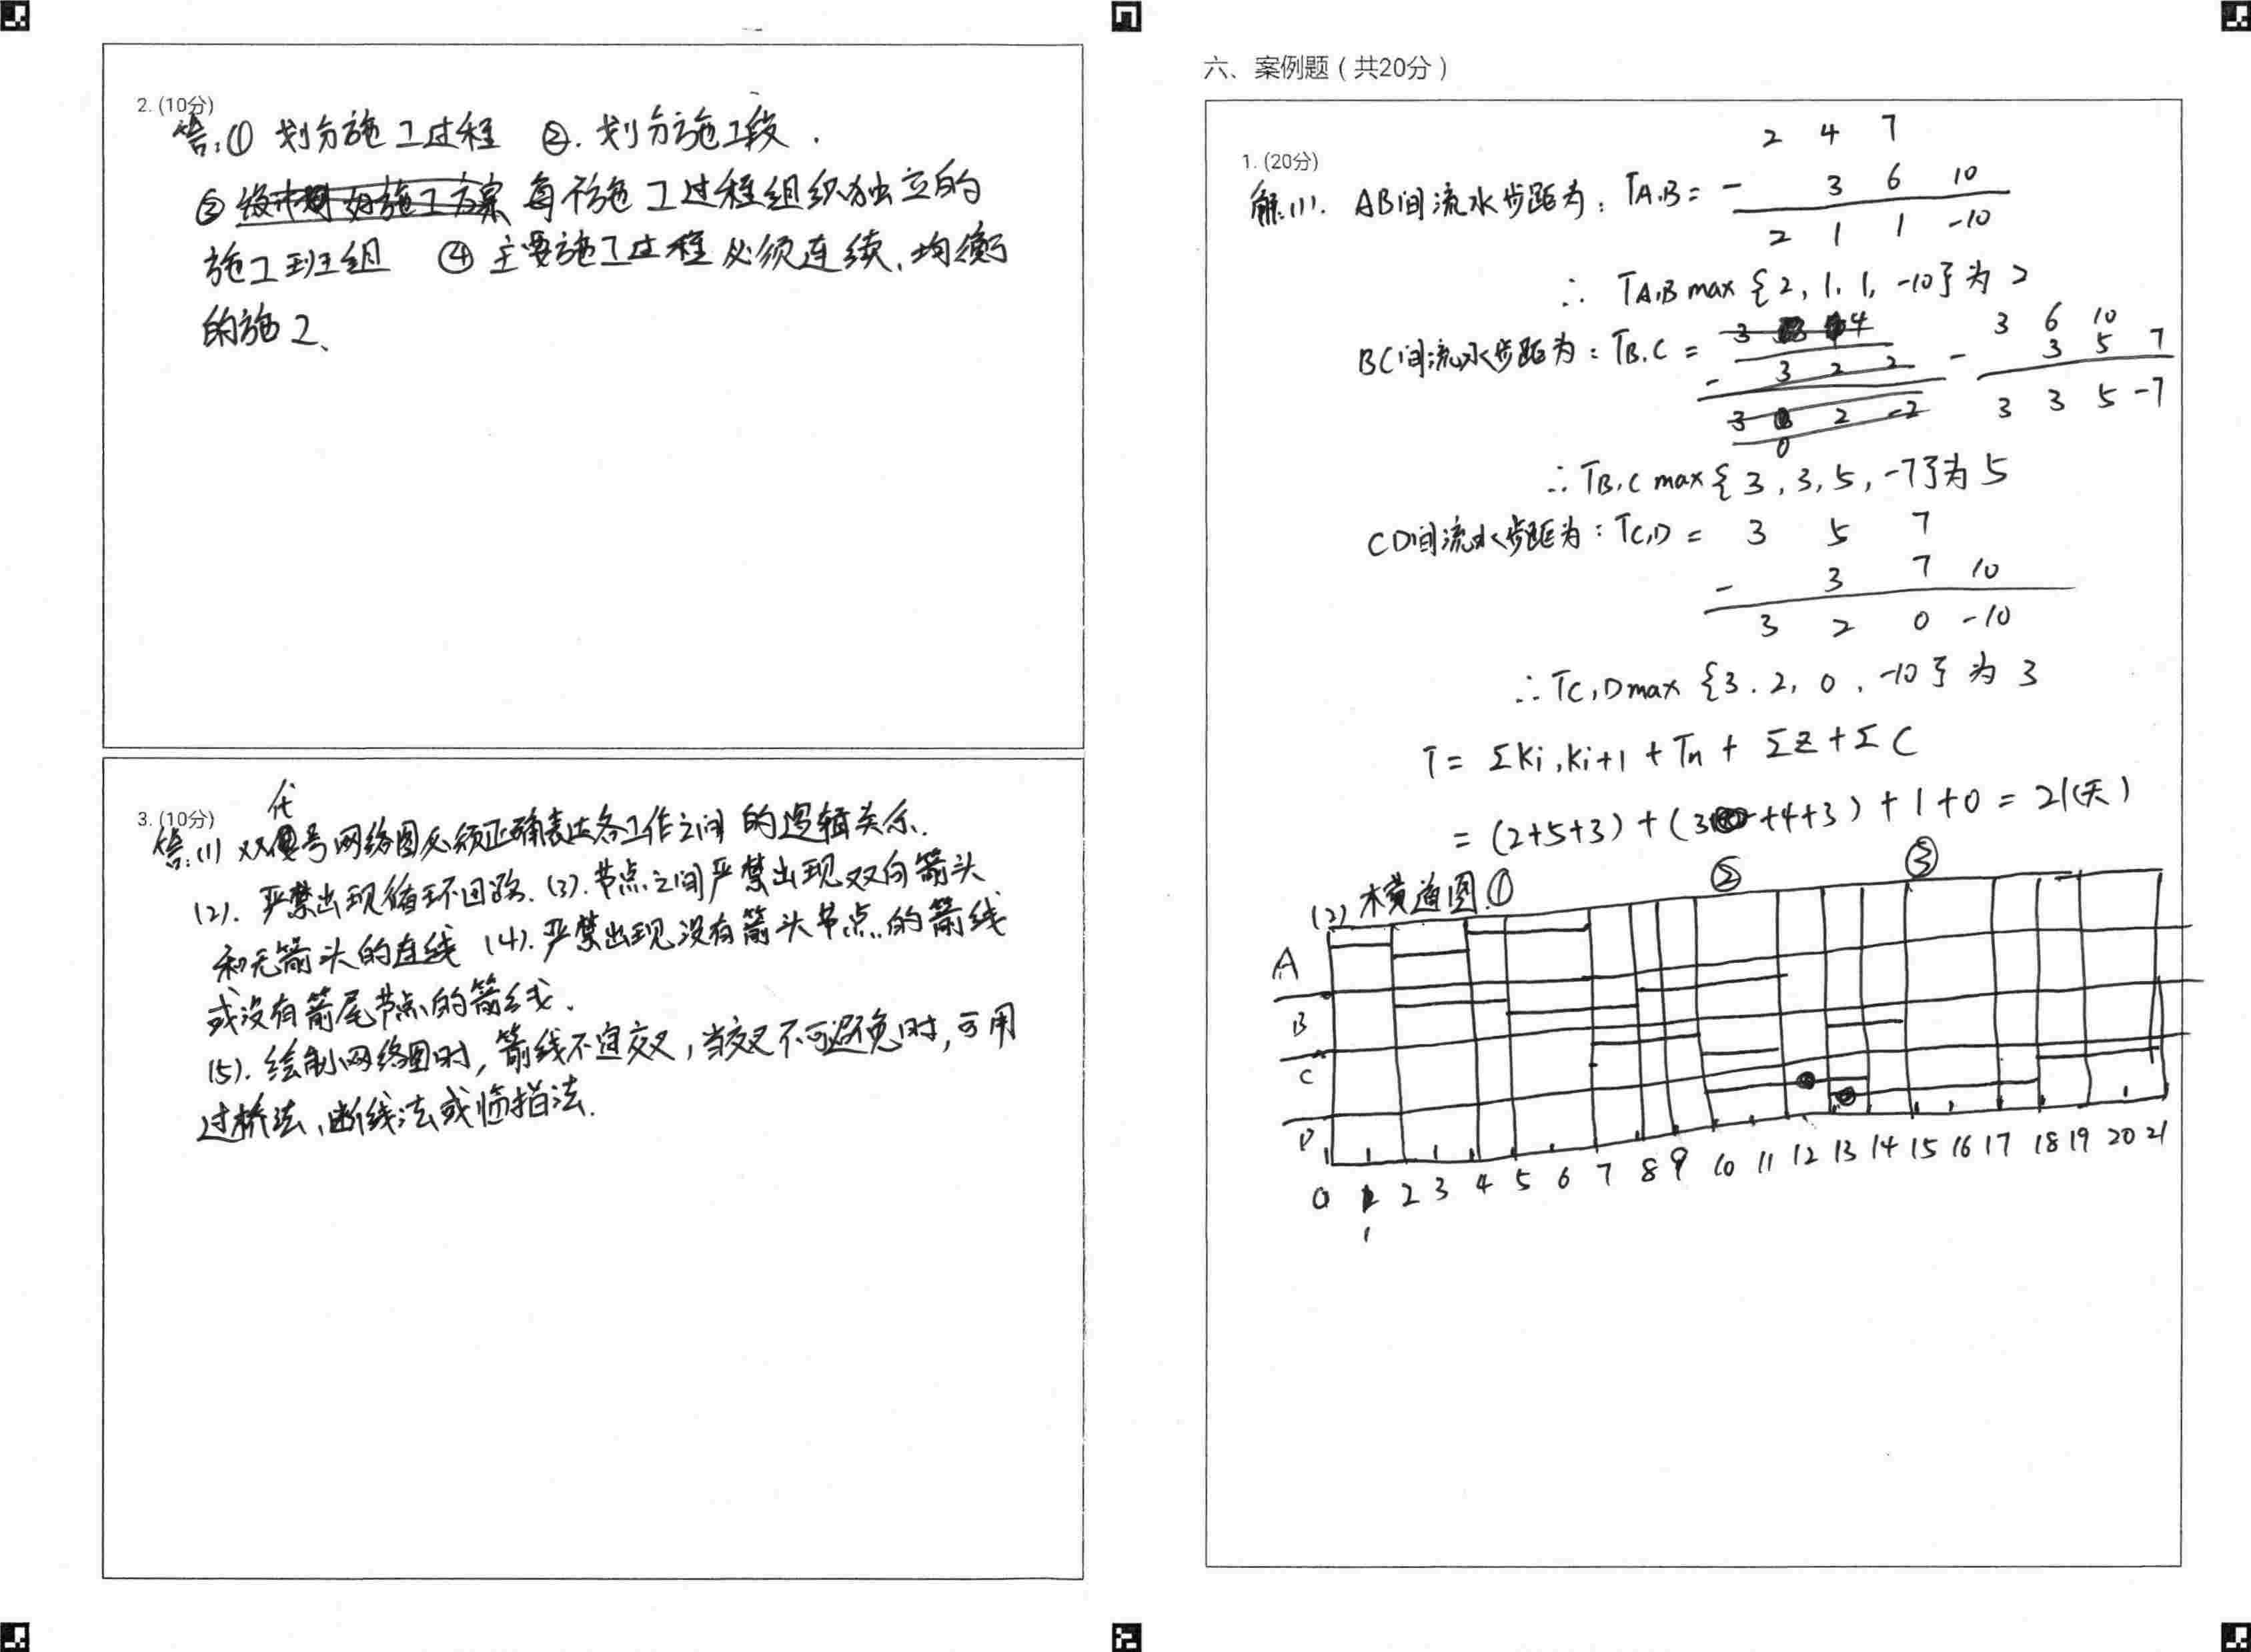 2. (10分)
答:① 划分施工过程 ②. 划分施工段.
③ 每个施工过程组织独立的
施工班组 ④ 主要施工过程必须连续、均衡
的施工、
3. (10分)
答:(1) 双代号网络图必须正确表达各工作之间的逻辑关系.
(2). 严禁出现循环回路. (3). 节点之间严禁出现双向箭头
和无箭头的连线 (4). 严禁出现没有箭头节点的箭线
或没有箭尾节点的箭线.
(5). 绘制网络图时, 箭线不宜交叉, 当交叉不可避免时, 可用
过桥法、断线法或指法.
六、案例题（共20分）
1. (20分)
2 4 7
解:(1). AB间流水步距为: TA,B = - 3 6 10
2 1 1 -10
∴ TA,B max {2, 1, 1, -10} 为 2
3 6 10
BC间流水步距为: TB,C = - 3 5 7
3 3 5 -7
∴ TB,C max {3, 3, 5, -7} 为 5
CD间流水步距为: TC,D = 3 5 7
- 3 7 10
3 2 0 -10
∴ TC,D max {3. 2, 0, -10} 为 3
T = ΣKi,Ki+1 + Tn + ΣZ + ΣC
= (2+5+3) + (3+4+3) + 1 + 0 = 21(天)
(2) 横道图 ① ② ③
A
B
C
D
0 1 2 3 4 5 6 7 8 9 10 11 12 13 14 15 16 17 18 19 20 21